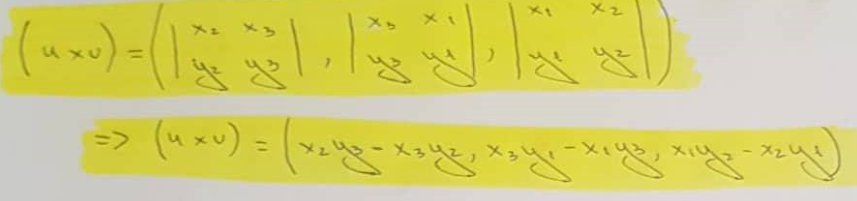 (u×v) = (|x₂ x₃ / y₂ y₃|, |x₃ x₁ / y₃ y₁|, |x₁ x₂ / y₁ y₂|)
=> (u×v) = (x₂y₃ - x₃y₂, x₃y₁ - x₁y₃, x₁y₂ - x₂y₁)